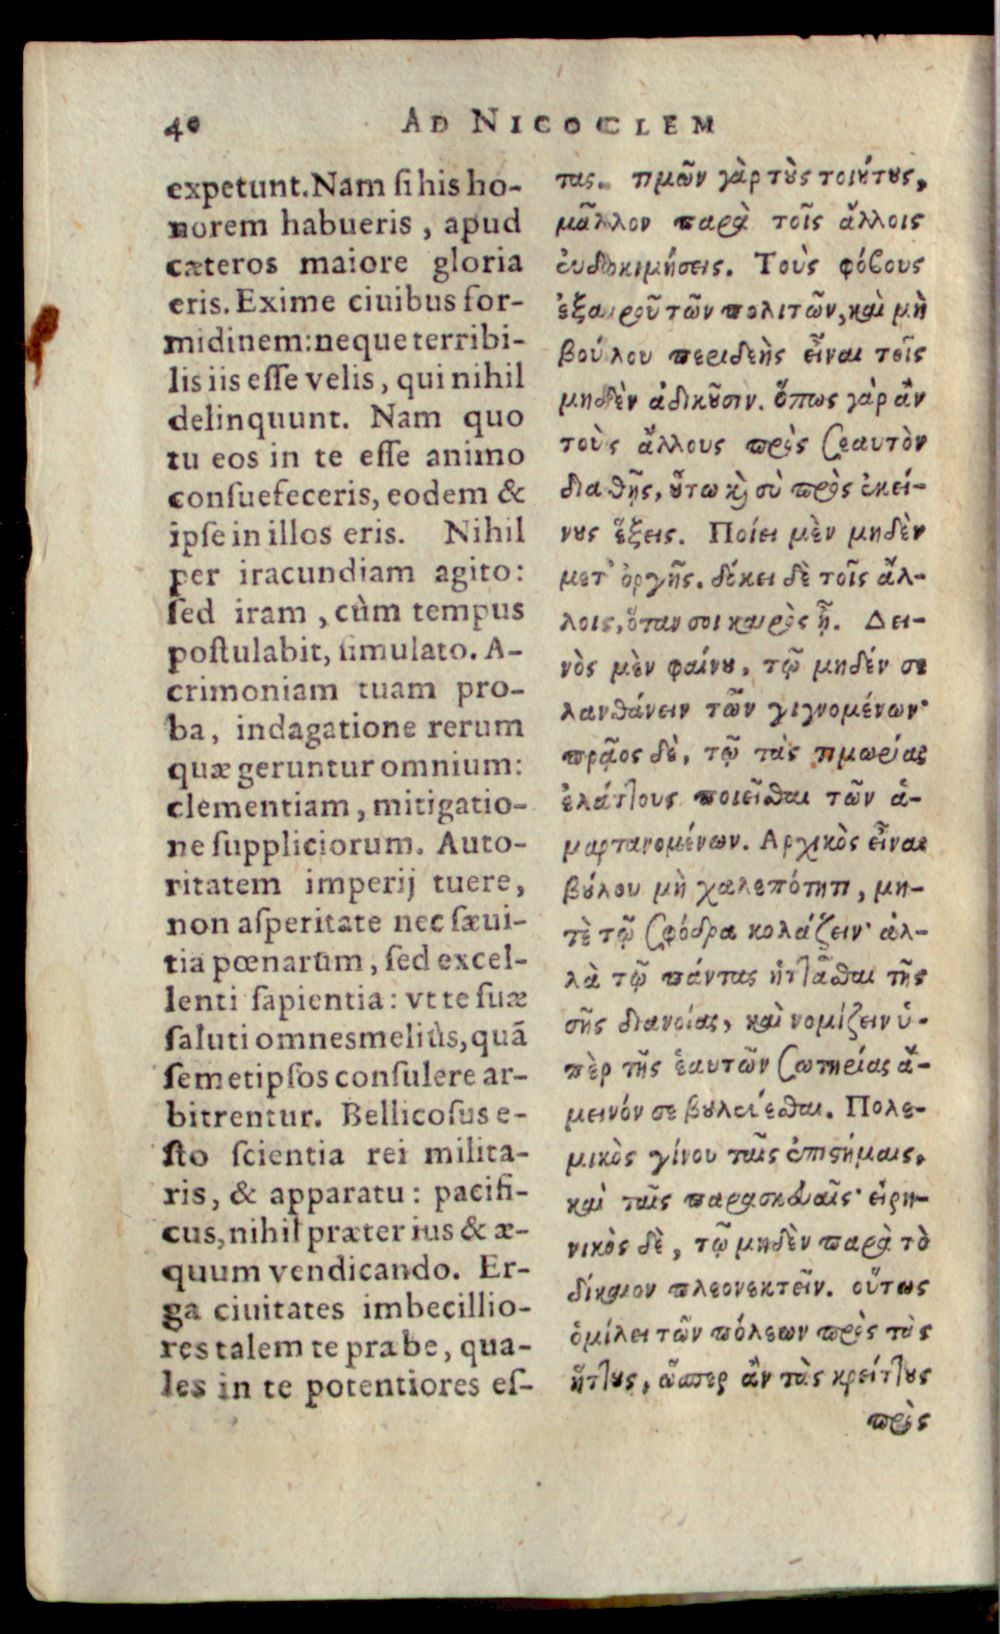 40 AD NICOCLEM
expetunt. Nam ſi his ho-
norem habueris, apud
cæteros maiore gloria
eris. Exime ciuibus for-
midinem: neque terribi-
lis iis eſſe velis, qui nihil
delinquunt. Nam quo
tu eos in te eſſe animo
conſuefeceris, eodem &
ipſe in illos eris. Nihil
per iracundiam agito:
ſed iram, cùm tempus
poſtulabit, ſimulato. A-
crimoniam tuam pro-
ba, indagatione rerum
quæ geruntur omnium:
clementiam, mitigatio-
ne ſuppliciorum. Auto-
ritatem imperij tuere,
non aſperitate nec ſæui-
tia pœnarum, ſed excel-
lenti ſapientia: vt te ſuæ
ſaluti omnes meliùs, quã
ſemetipſos conſulere ar-
bitrentur. Bellicoſus e-
ſto ſcientia rei milita-
ris, & apparatu: pacifi-
cus, nihil præter ius & æ-
quum vendicando. Er-
ga ciuitates imbecillio-
res talem te præbe, qua-
les in te potentiores eſ-
τας. τιμῶν γὰρ τοὺς τοιούτους,
μᾶλλον παρὰ τοῖς ἄλλοις
εὐδοκιμήσεις. Τοὺς φόβους
ἐξαιροῦ τῶν πολιτῶν, καὶ μὴ
βούλου περιδεὴς εἶναι τοῖς
μηδὲν ἀδικοῦσιν. ὅπως γὰρ ἂν
τοὺς ἄλλους πρὸς σεαυτὸν
διαθῇς, οὕτω καὶ σὺ πρὸς ἐκεί-
νους ἕξεις. Ποίει μὲν μηδὲν
μετ' ὀργῆς. δόκει δὲ τοῖς ἄλ-
λοις, ὅταν σοι καιρὸς ᾖ. Δει-
νὸς μὲν φαίνου, τῷ μηδέν σε
λανθάνειν τῶν γιγνομένων·
πρᾷος δὲ, τῷ τὰς τιμωρίας
ἐλάττους ποιεῖσθαι τῶν ἁ-
μαρτανομένων. Αρχικὸς εἶναι
βούλου μὴ χαλεπότητι, μη-
τὲ τῷ σφόδρα κολάζειν· ἀλ-
λὰ τῷ πάντας ἡττᾶσθαι τῆς
σῆς διανοίας, καὶ νομίζειν ὑ-
πὲρ τῆς ἑαυτῶν σωτηρίας ἄ-
μεινόν σε βουλεύεσθαι. Πολε-
μικὸς γίνου ταῖς ἐπιστήμαις,
καὶ ταῖς παρασκευαῖς· εἰρη-
νικὸς δὲ, τῷ μηδὲν παρὰ τὸ
δίκαιον πλεονεκτεῖν. οὕτως
ὁμίλει τῶν πόλεων πρὸς τὰς
ἥττους, ὥσπερ ἂν τὰς κρείττους
πρὸς